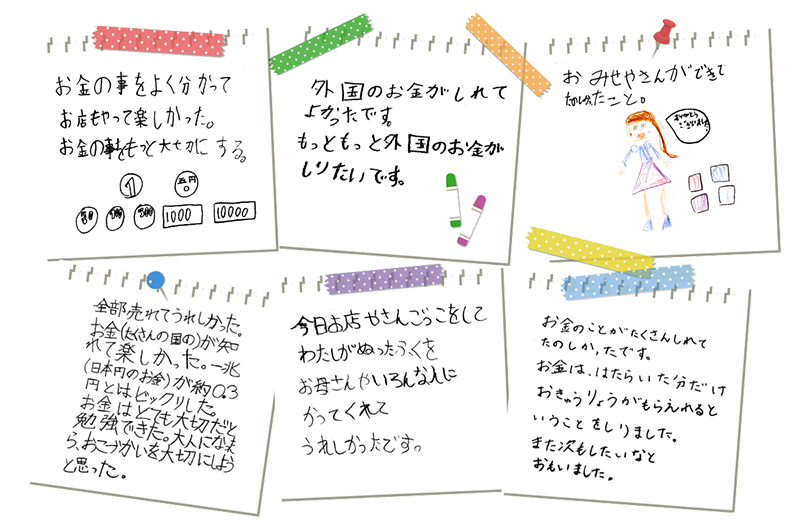 お金の事をよく分かって
お店もやって楽しかった。
お金の事をもっと大切にする。
1
五円
50
100
500
1000
10000
外国のお金がしれて
よかったです。
もっともっと外国のお金が
しりたいです。
おみせやさんができて
たのしかったこと。
ありがとう
ございました
全部売れてうれしかった。
お金(たくさんの国の)が知
れて楽しかった。一兆
(日本円のお金)が約0.3
円とはビックリした。
お金はとても大切だと
勉強できた。大人になった
ら、おこづかいを大切にしよう
と思った。
今日お店やさんごっこをして
わたしがぬったふくを
お母さんやいろんな人に
かってくれて
うれしかったです。
お金のことがたくさんしれて
たのしか,たです。
お金は、はたらいた分だけ
おきゅうりょうがもらえれると
いうことをしりました。
また次もしたいなと
おもいました。